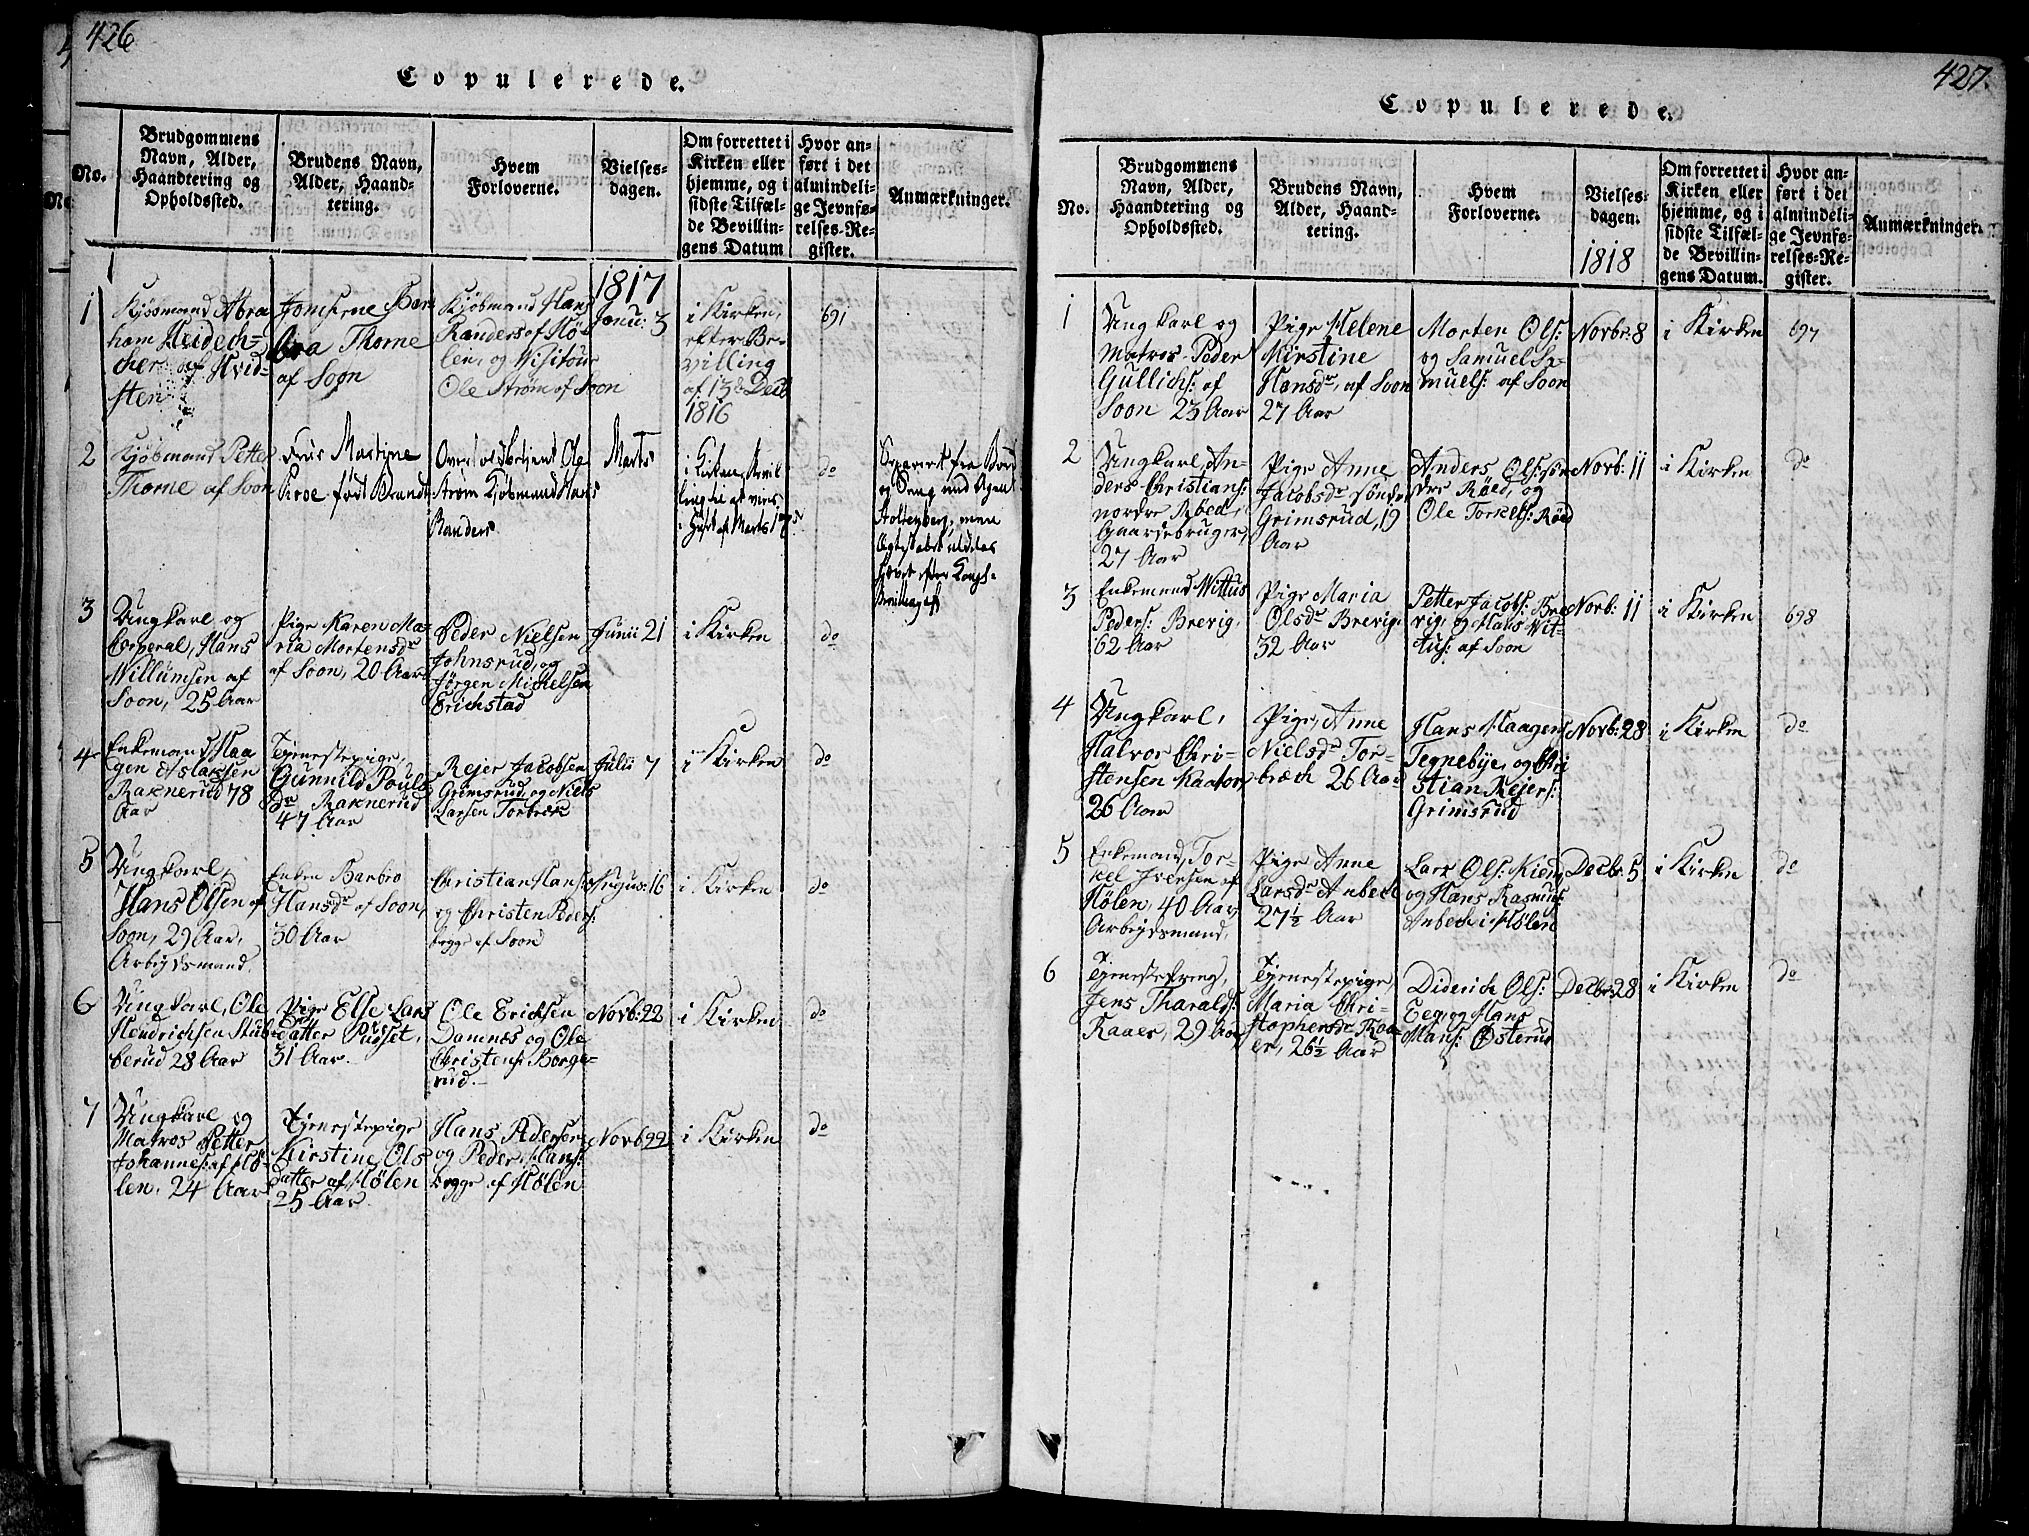 426
Copulerede.
No.
Brudgommens Navn, Alder, Haandtering og Opholdssted.
Brudens Navn, Alder, Haandtering.
Hvem Forloverne.
Vielsesdagen.
Om forrettet i Kirken eller hjemme, og i sidste Tilfælde Bevillingens Datum
Hvor anført i det almindelige Jevnførelses-Register.
Anmærkninger.
1817
1
Kjøbmand Abra
ham Heidech-
cher af Hvid-
sten
Jomfrue Bar
bra Thorne
af Soon
Kjøbmand Hans
Randers af Hø-
len, og Visiteur
Ole Strøm af Soon
Janu: 3
i Kirken,
efter Be-
villing
af 13de Decb
1816
691
2
Kjøbmand Petter
Thorne af Soon
Frue Martine
Kroe født Brandt
Overtoldbetjent Ole
Strøm Kjøbmand Hans
Randers
Marts
i Kirken
do
Separert fra Bord
og Seng med
Stoltenberg, men
3
Ungkarl og
Corperal, Hans
Willumsen af
Soon, 25 Aar
Pige Karen Ma-
ria Mortensdr
af Soon, 20 Aar
Peder Nielsen
Johnsrud, og
Jørgen Michelsen
Erichstad
Junii 21
i Kirken
do
4
Enkemand, Haa
gen Aslaksen
Raknerud 78
Aar
Tjenestepige,
Gunnild Pouls
dr Raknerud
47 Aar
Rejer Jacobsen
Grimsrud, og Niels
Larsen Torbrek
Julii 7
i Kirken
do
5
Ungkarl,
Hans Olsen af
Soon, 29 Aar,
Arbeydsmand.
Enken Barbro
Hansdr af Soon,
30 Aar
Christian Hans:
og Christen Peders:
begge af Soon
August: 16
i Kirken
do
6
Ungkarl, Ole
Hendrichsen Stub-
berud 28 Aar
Pige Else Lars
datter Pusset,
31 Aar.
Ole Erichsen
Damnæs og Ole
Christens: Borge-
rud.
Novb: 22
i Kirken
do
7
Ungkarl og
Matros Petter
Johannes: af Hø-
len, 24 Aar
Tjenestepige
Kirstine Ols
datter af Hølen
25 Aar.
Hans Pedersen
og Peder Hans:
begge af Hølen
Novb 22
i Kirken
do
427.
Copulerede.
No.
Brudgommens Navn, Alder, Haandtering og Opholdssted.
Brudens Navn, Alder, Haandtering.
Hvem Forloverne.
Vielsesdagen.
1818
Om forrettet i Kirken eller hjemme, og i sidste Tilfælde Bevillingens Datum.
Hvor anført i det almindelige Jevnførelses-Register.
Anmærkninger.
1
Ungkarl og
Matros Peder
Gullichs: af
Soon 23 Aar
Pige Helene
Kirstine
Hansdr, af Soon
27 Aar
Morten Ols:
og Samuel Sa-
muels: af Soon
Novbr: 8
i Kirken
697
2
Ungkarl, An-
ders Christians:
nordre Røed,
Gaardbruger,
27 Aar
Pige Anne
Jacobsdr søndre
Grimsrud, 19
Aar
Anders Ols: søn
dre Røed, og
Ole Torkels: Røed
Novb: 11
i Kirken
do
3
Enkemand Wittus
Peders: Brevig,
62 Aar
Pige Maria
Olsdr Brevig
32 Aar
Petter Jacobs: Bre
vig, og Hans Wit-
tus: af Soon
Novb: 11
i Kirken
698
4
Ungkarl,
Halvor Chri-
stensen Kaatorp
26 Aar
Pige, Anne
Nielsdr Tor-
bræch 26 Aar
Hans Haagens:
Tegnebye, og Chri
stian Rejers:
Grimsrud
Novb: 28
i Kirken
do
5
Enkemand, Tor-
kel Iversen af
Hølen, 40 Aar,
Arbejdsmand,
Pige Anne
Larsdr Anbech
27½ Aar
Lars Ols: Kien
og Hans Rasmus:
Anbech i Hølen
Decbr: 5
i Kirken
do
6
Tjenestedreng,
Jens Tharalds:
Raaer, 29 Aar
Tjenestepige,
Maria Chri-
stophersdr Raa-
er, 26½ Aar
Diderich Ols:
Eeg, og Hans
Hans: Østerud
Decbr: 28
i Kirken
do